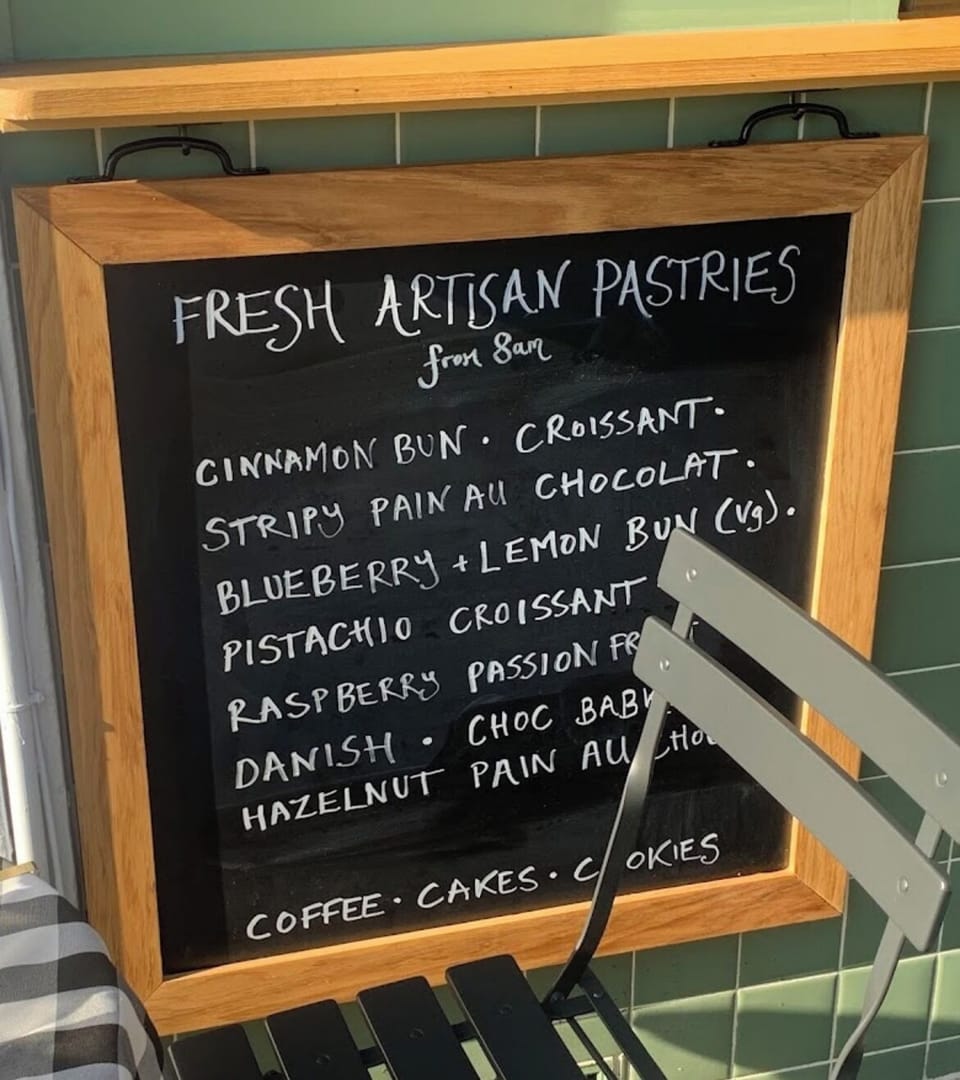 FRESH ARTISAN PASTRIES
from 8am
CINNAMON BUN · CROISSANT ·
STRIPY PAIN AU CHOCOLAT ·
BLUEBERRY + LEMON BUN (Vg) ·
PISTACHIO CROISSANT
RASPBERRY PASSION
DANISH · CHOC
HAZELNUT PAIN AU
COFFEE · CAKES · COOKIES